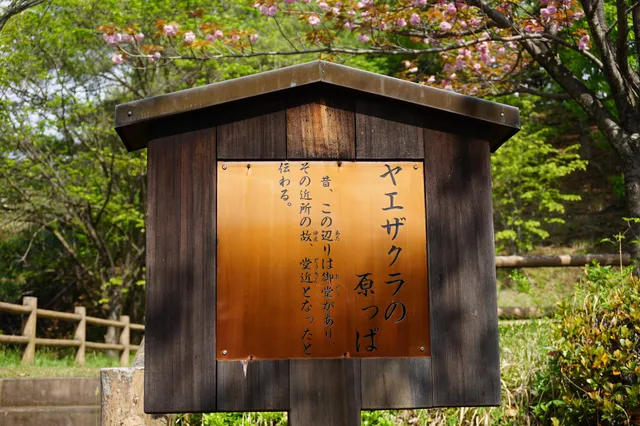 ヤエザクラの
原っぱ
昔、この辺りは御堂があり
その近所の故、堂近となったと
伝わる。